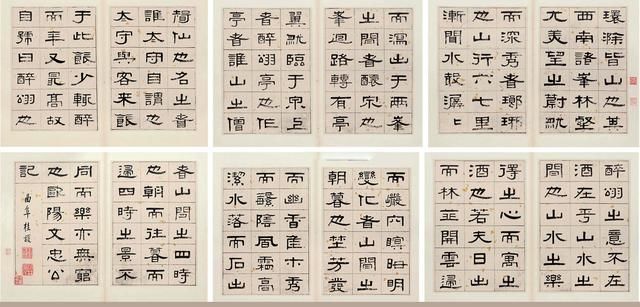 環滁皆山也其
西南諸峯林壑
尤美望之蔚然
而深秀者瑯琊
也山行六七里
漸聞水聲潺潺
而瀉出于兩峯
之間者釀泉也
峯回路轉有亭
翼然臨于泉上
者醉翁亭也作
亭者誰山之僧
智仙也名之者
誰太守自謂也
太守與客來飲
于此飲少輒醉
而年又最高故
自號曰醉翁也
醉翁之意不在
酒在乎山水之
間也山水之樂
得之心而寓之
酒也若夫日出
而林霏開雲歸
而巖穴暝晦明
變化者山間之
朝暮也野芳發
而幽香佳木秀
而繁陰風霜高
潔水落而石出
者山間之四時
也朝而往暮而
歸四時之景不
同而樂亦無窮
也歐陽文忠公
記
曲阜桂馥